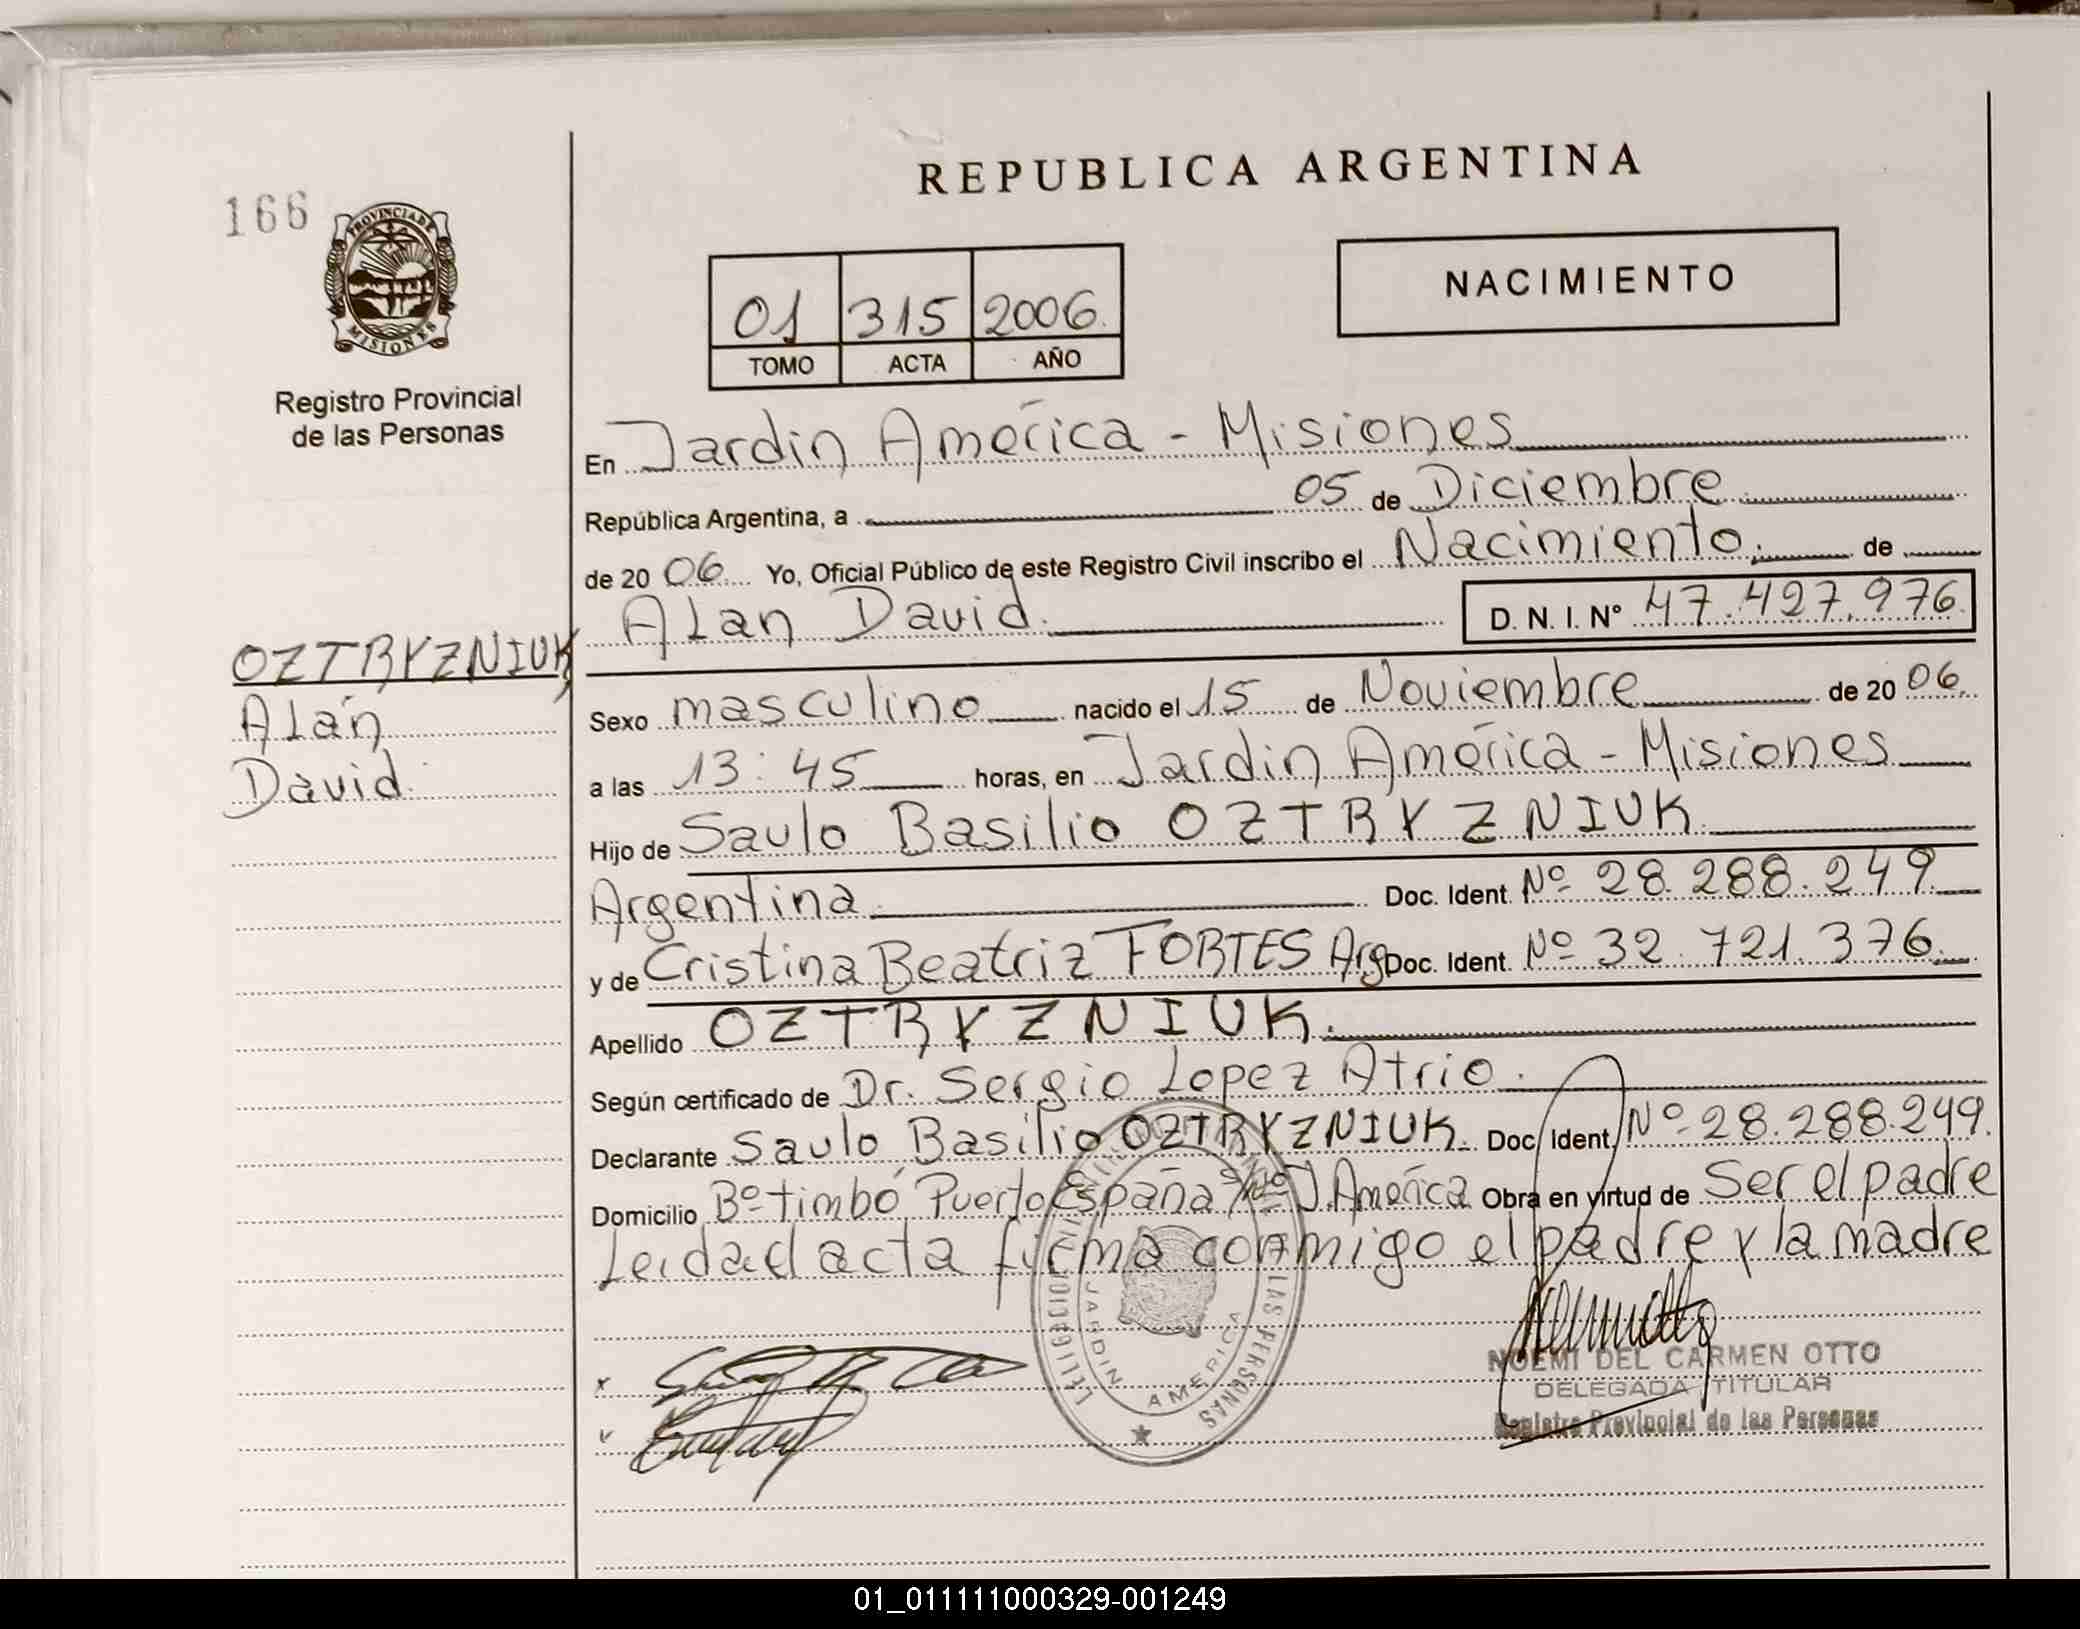 REPUBLICA ARGENTINA
166
PROVINCIA DE MISIONES
Registro Provincial
de las Personas
NACIMIENTO
01 315 2006
TOMO ACTA AÑO
En Jardin América - Misiones
República Argentina, a 05 de Diciembre
de 20 06 Yo, Oficial Público de este Registro Civil inscribo el Nacimiento de
Alan David D. N. I. Nº 47.427.976
OZTRYZNIUK
Alan
David
Sexo masculino nacido el 15 de Noviembre de 20 06
a las 13:45 horas, en Jardin América - Misiones
Hijo de Saulo Basilio OZTRYZNIUK
Argentina Doc. Ident. Nº 28.288.249
y de Cristina Beatriz FORTES Arg Doc. Ident. Nº 32.721.376
Apellido OZTRYZNIUK
Según certificado de Dr. Sergio Lopez Atrio.
Declarante Saulo Basilio OZTRYZNIUK Doc. Ident. Nº 28.288.249.
Domicilio Bº timbó Puerto España J. América Obra en virtud de Ser el padre
Leida el acta firma conmigo el padre y la madre
JARDIN AMERICA
LAS PERSONAS
NOEMI DEL CARMEN OTTO
DELEGADA TITULAR
Registro Provincial de las Personas
01_011111000329-001249